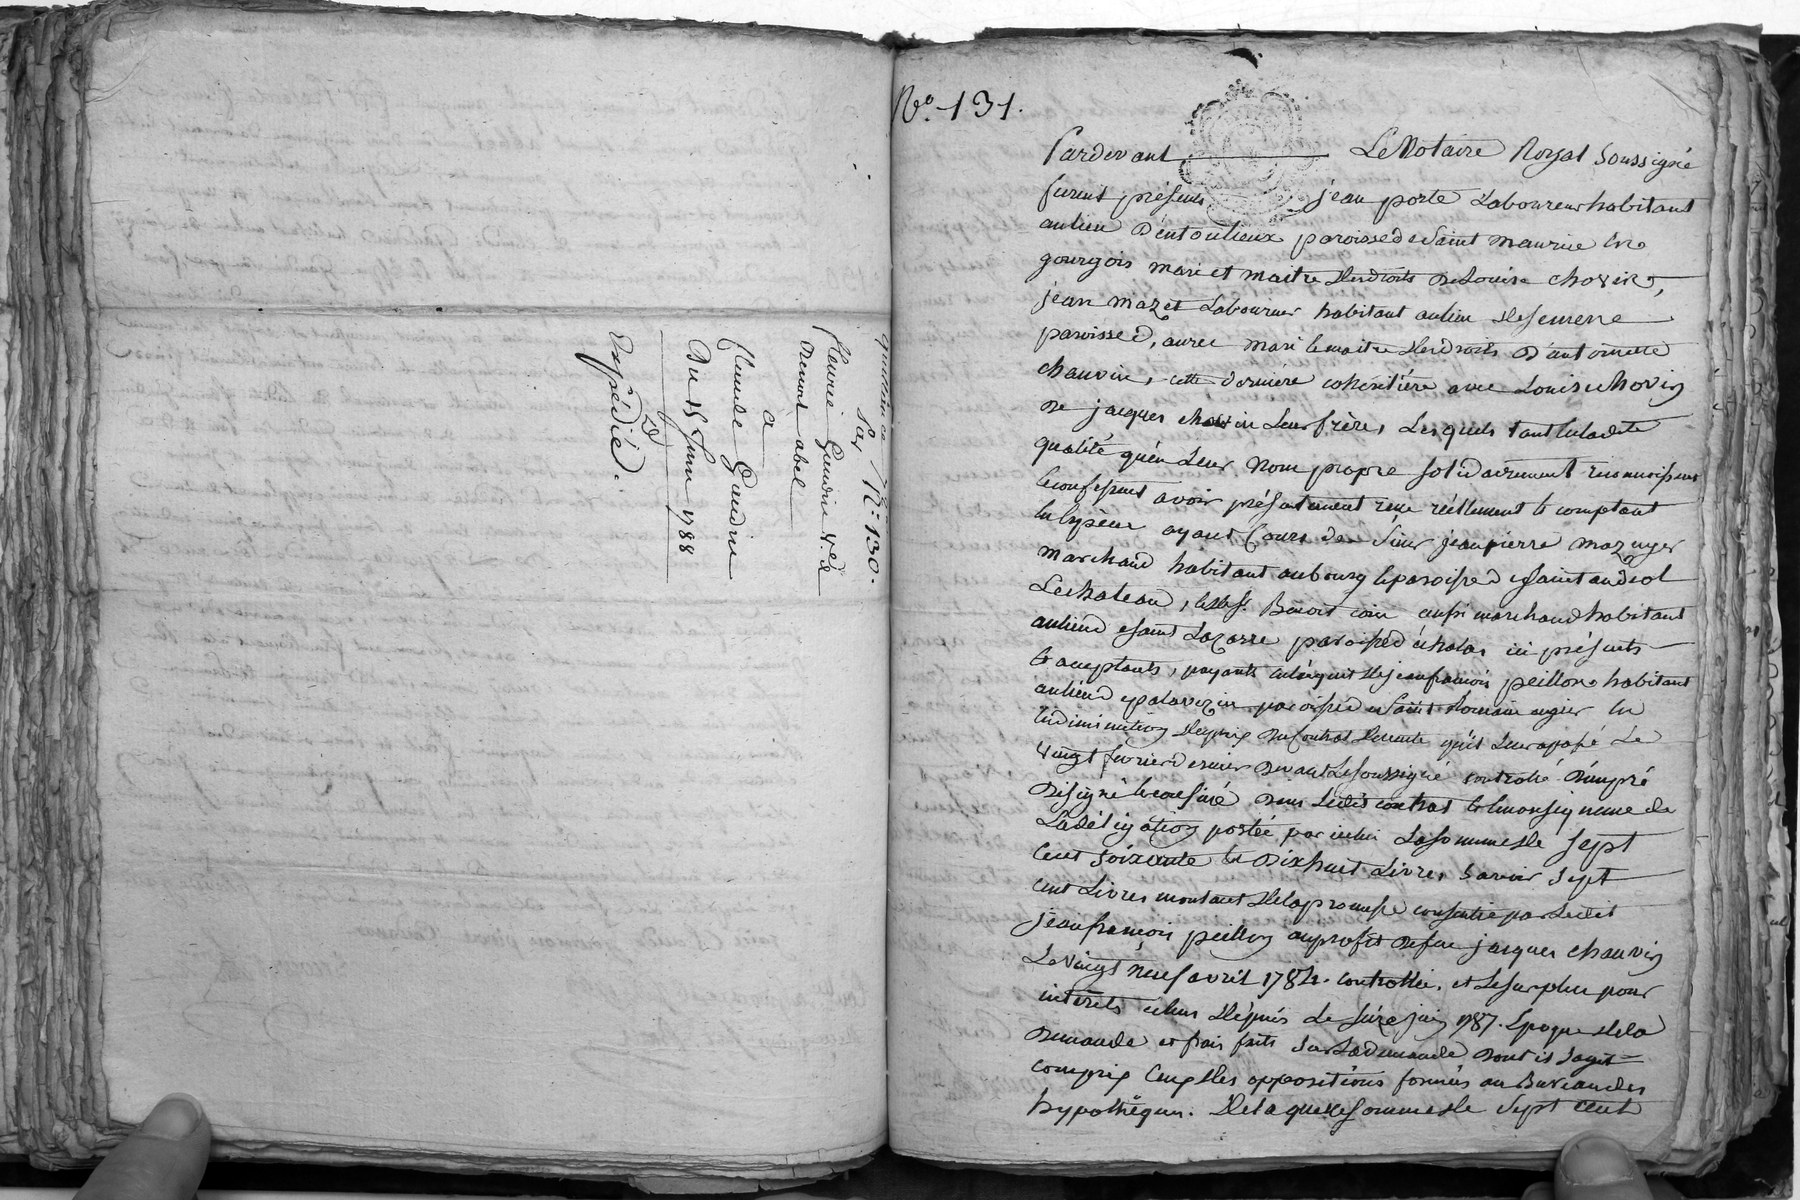 quittance N.° 130.
Par
fleurie Gaudin V.e d
Benoit abel
a
flemde Gaudin
Du 15 Juin 1788
Expédié.
N.° 131.
Pardevant Le Notaire Royal Soussigné
furent présents jean porte Laboureur habitant
au lieu D'entouilieux paroisse de Saint maurice en
gourgois mari et maitre des droits De Louise chovin,
jean mazet Laboureur habitant au lieu de
paroisse d'aurec mari & maitre des droits D'antoinette
chauvin, cette derniere cohéritière avec Louise chovin
De jacques chovin Leur frère, Lesquels tant en ladite
qualité qu'en Leur Nom propre solidairement reconnoissent
& confessent avoir présentement reçu réellement & comptant
en Espèces ayant Cours de Sieur jean pierre mazuyer
marchand habitant au bourg & paroisse de Saint andéol
Le chateau, & de Sr. Benoit coin aussi marchand habitant
au lieu de Saint Lazarre paroisse d'échalas ici présents
& acceptants, payants en l'acquit de jean françois peillon habitant
au lieu de palavezin paroisse de Saint Romain en gier en
en diminution du prix du Contrat de vente qu'il Leur a passé Le
vingt fevrier dernier Devant Le Soussigné controllé
Désigné & confiné Dans Ledit contrat & en conséquence de
La délégation portée par icelui La somme de Sept
Cent soixante & Dix huit Livres, savoir Sept
cent Livres montant de la promesse consentie par Ledit
jean françois peillon au profit De feu jacques chauvin
Le vingt neuf avril 1784. controllée, et Le surplus pour
interets échus depuis Le seize juin 1787. Epoque de la
Demande et frais faits sur La demande Dont il s'agit
compris Ceux des oppositions formées au Bureau des
hypothéques. De laquelle somme de Sept cent